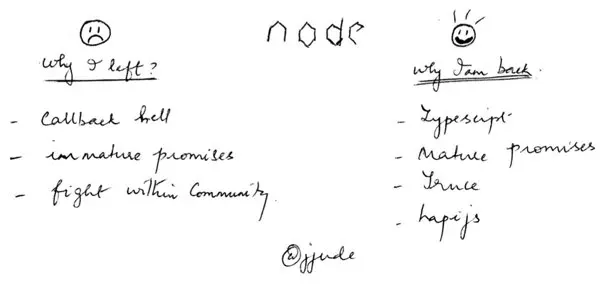 node
why I left?
- Callback hell
- immature promises
- fight within Community
why I am back
- Typescript
- Mature promises
- Truce
- hapijs
@jjude